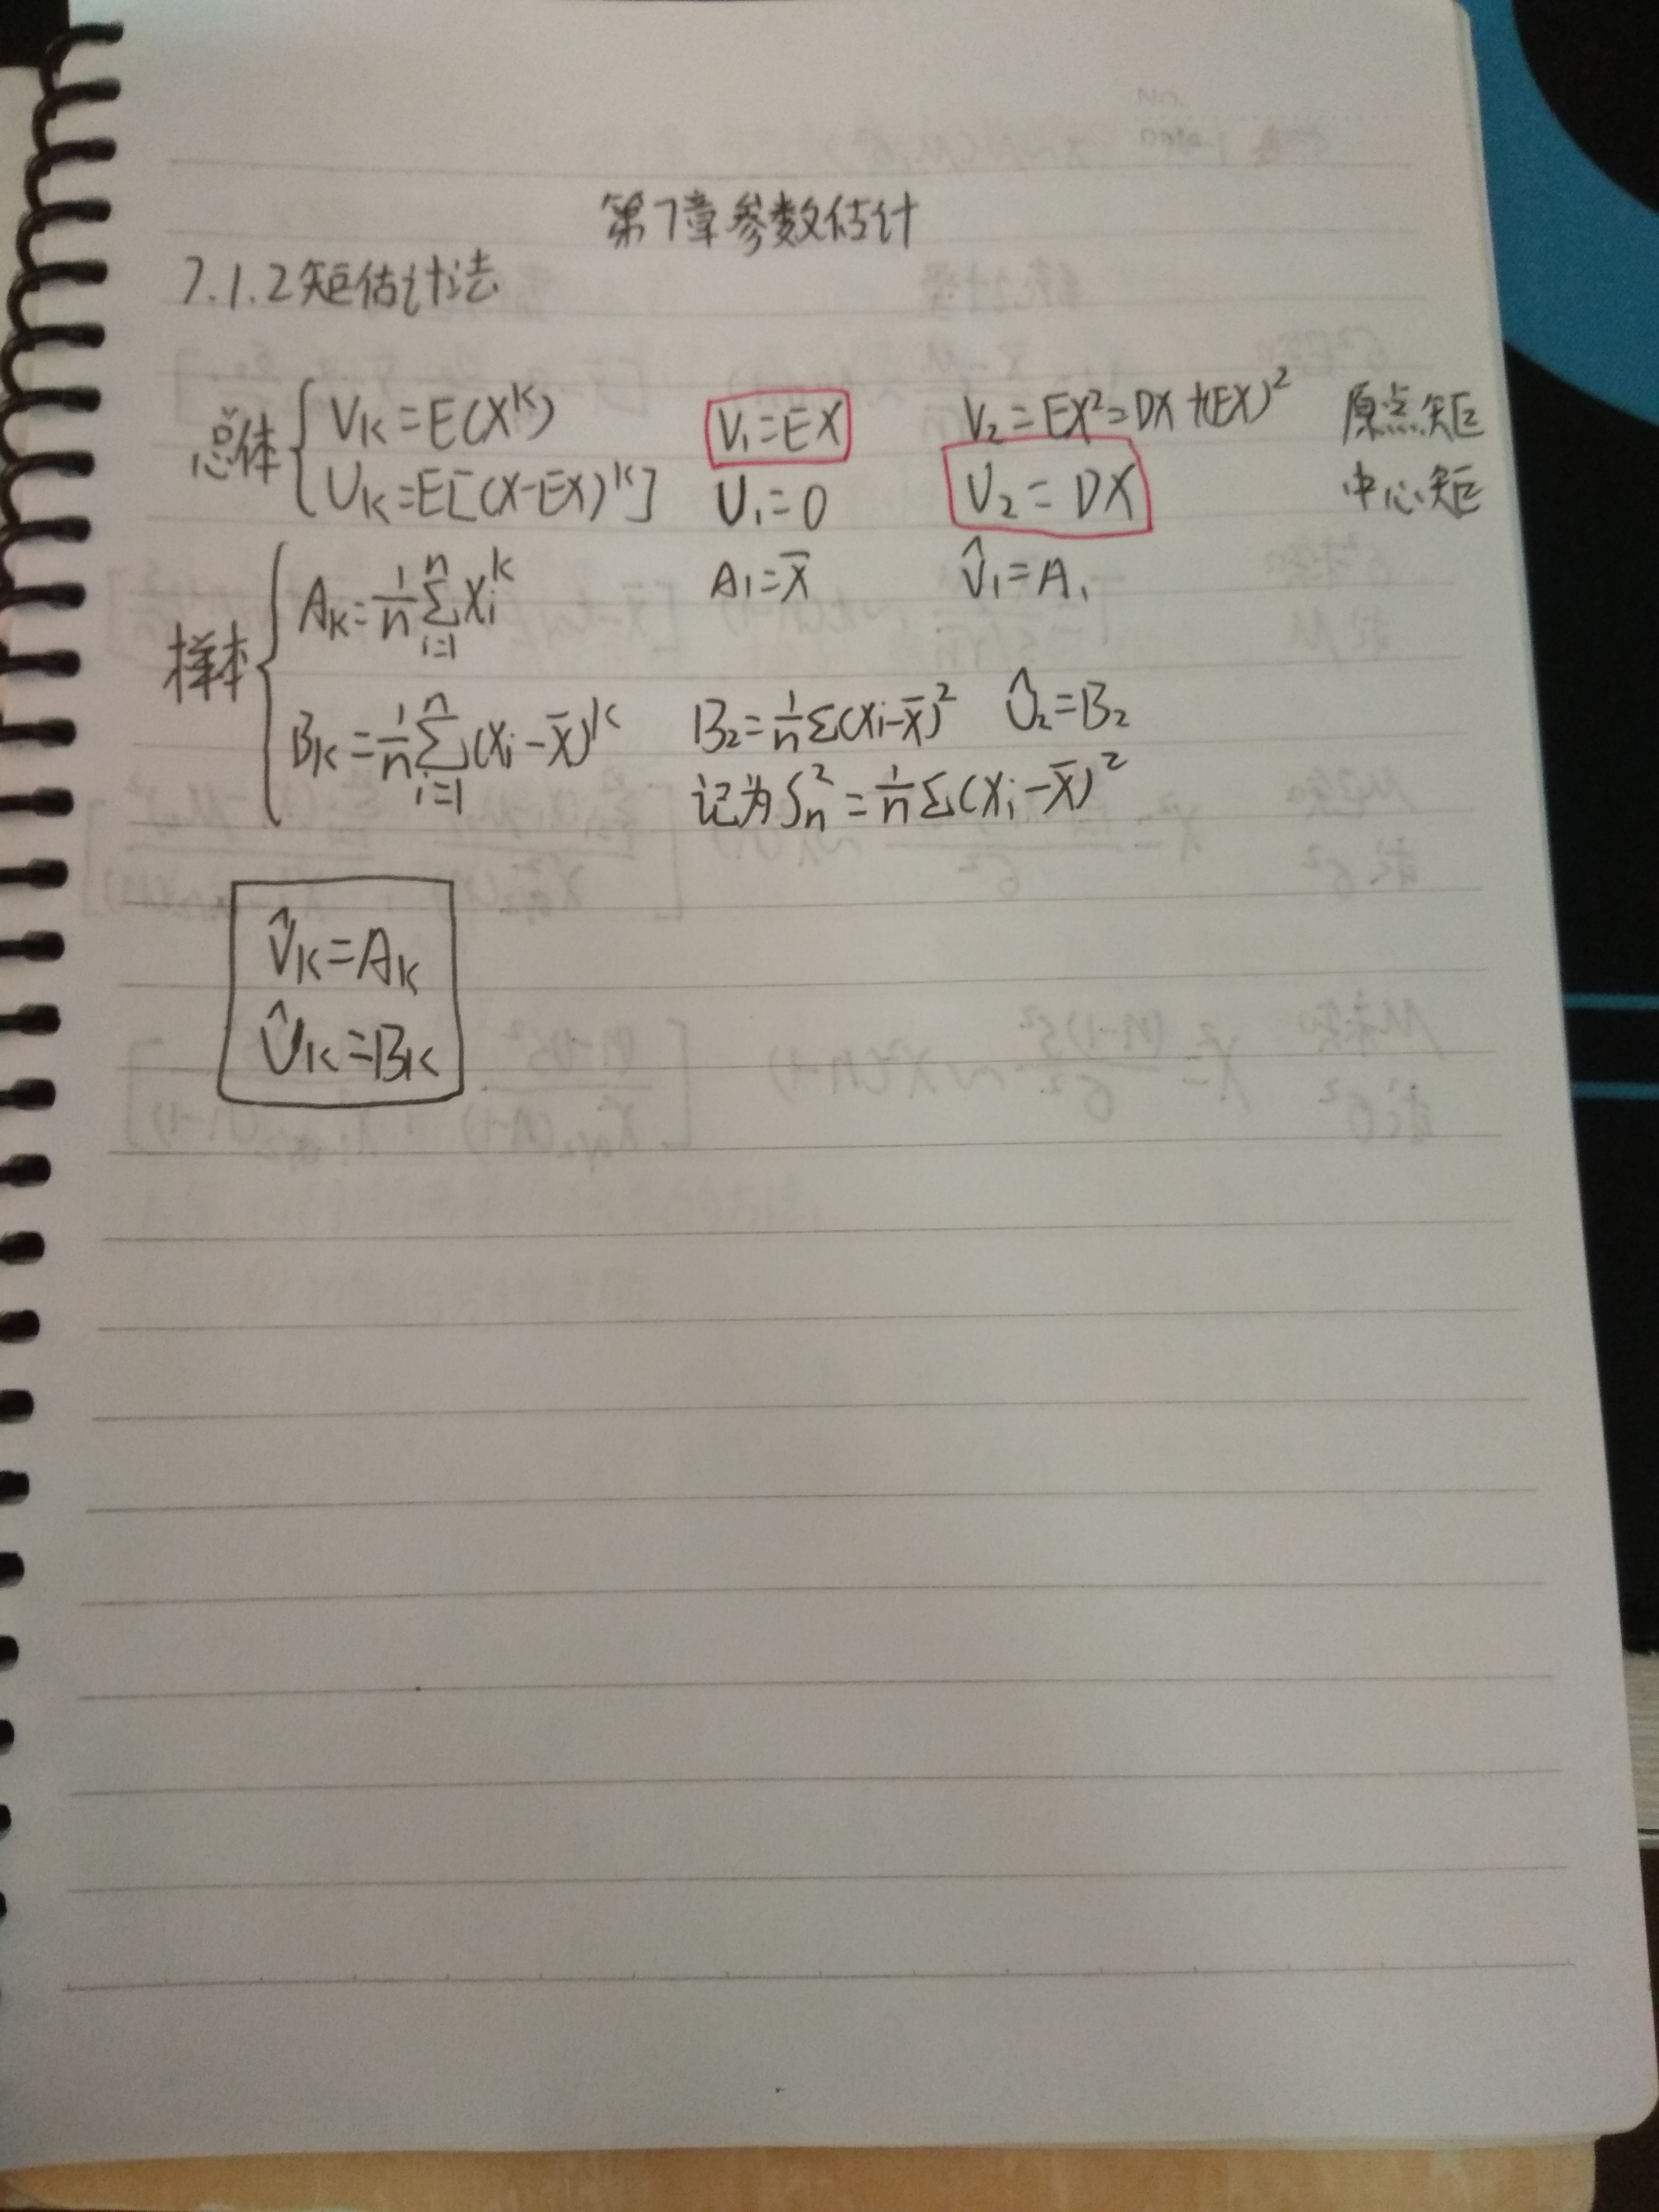 第7章参数估计
7.1.2矩估计法
总体 { V_K=E(X^K) V_1=EX V_2=EX^2=DX+(EX)^2 原点矩
U_K=E[(X-EX)^K] U_1=0 U_2=DX 中心矩
样本 { A_K=\frac{1}{n}\sum_{i=1}^{n}X_i^k A_1=\bar{X} \hat{V}_1=A_1
B_K=\frac{1}{n}\sum_{i=1}^{n}(X_i-\bar{X})^K B_2=\frac{1}{n}Σ(X_i-\bar{X})^2 \hat{U}_2=B_2
记为S_n^2=\frac{1}{n}Σ(X_i-\bar{X})^2
\hat{V}_K=A_K
\hat{U}_K=B_K